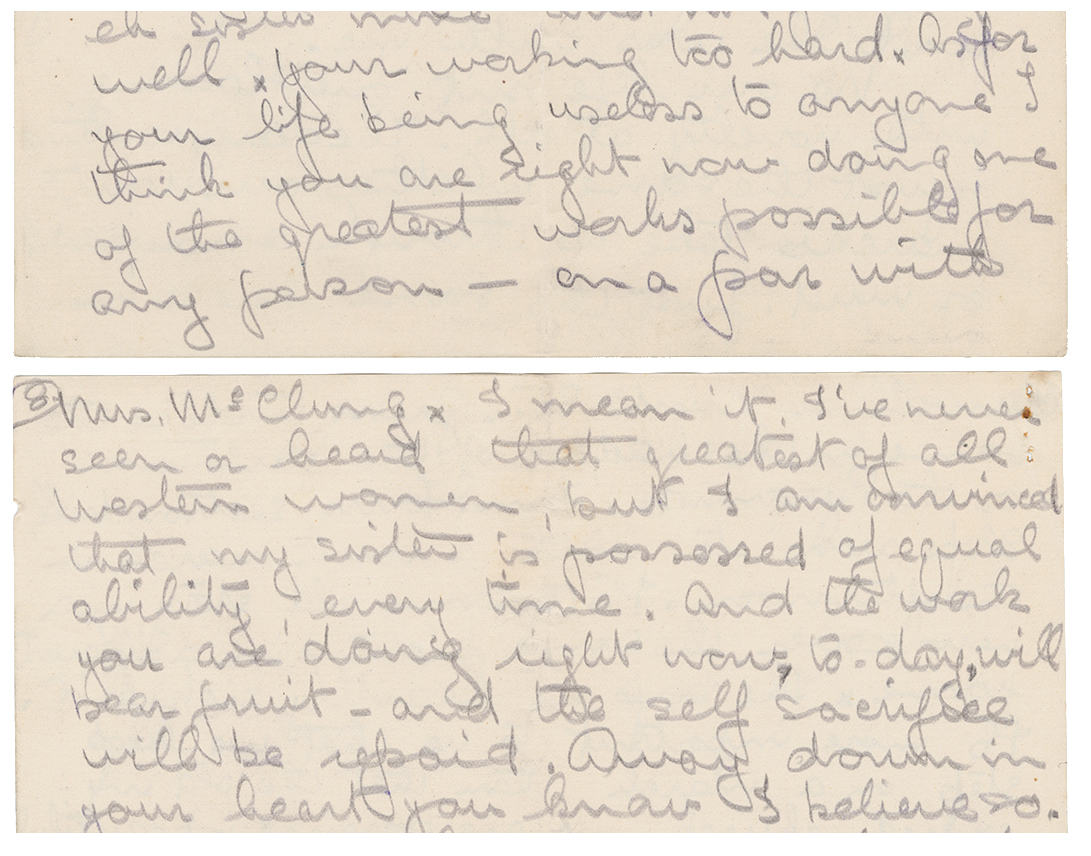 eh sister mine
well x your working too hard x As for
your life being useless to anyone I
think you are right now doing one
of the greatest works possible for
any person — on a par with
8. Mrs. Mc Clung x I mean it. I've never
seen or heard that greatest of all
Western women, but I am convinced
that my sister is possessed of equal
ability, every time. And the work
you are doing right now, to-day, will
bear fruit - and the self sacrifice
will be repaid. Away down in
your heart you know I believe so.